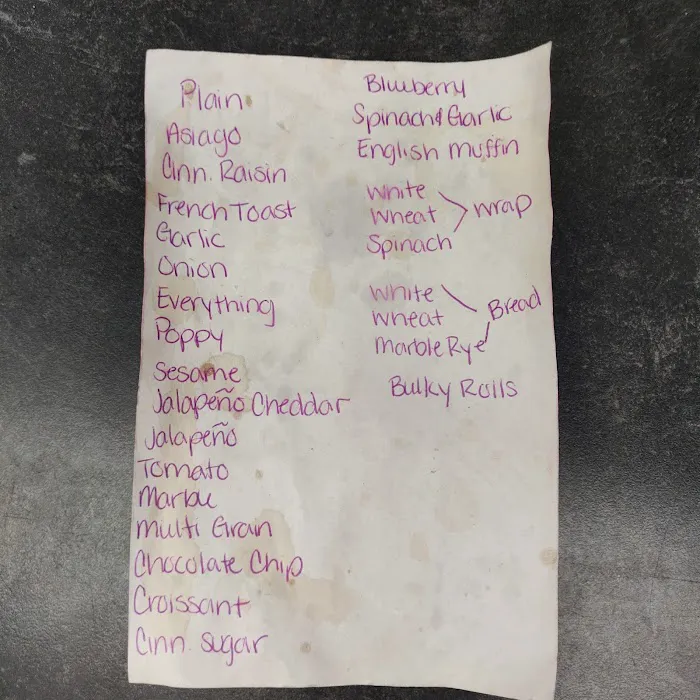 Plain
Asiago
Cinn. Raisin
French Toast
Garlic
Onion
Everything
Poppy
Sesame
Jalapeño Cheddar
Jalapeño
Tomato
Marble
Multi Grain
Chocolate Chip
Croissant
Cinn. sugar
Blueberry
Spinach & Garlic
English muffin
White
Wheat
Spinach
Wrap
White
Wheat
Marble Rye
Bread
Bulky Rolls